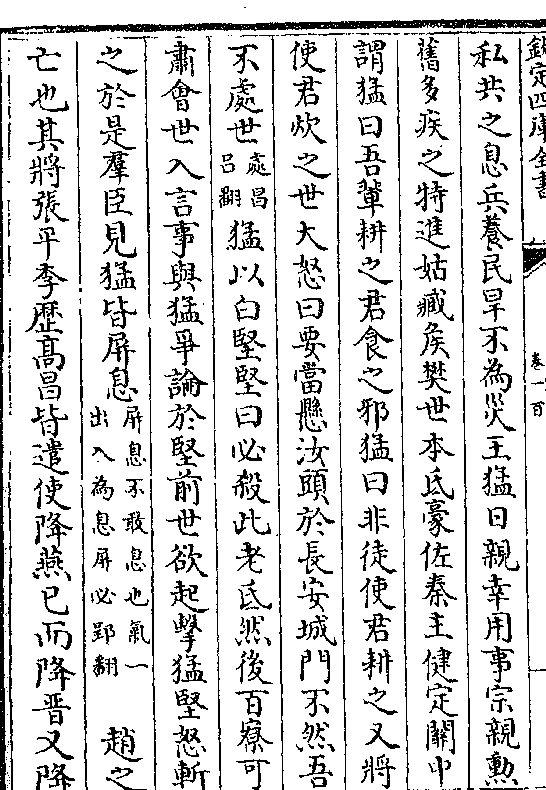 欽定四庫全書
卷一百
私共之息兵養民旱不為災王猛日親幸用事宗親勲
舊多疾之特進姑臧矦樊世本氐豪佐秦主健定關中
謂猛曰吾輩耕之君食之邪猛曰非徒使君耕之又將
使君炊之世大怒曰要當懸汝頭於長安城門不然吾
不處世處昌呂翻猛以白堅堅曰必殺此老氐然後百寮可
肅會世入言事與猛爭論於堅前世欲起擊猛堅怒斬
之於是羣臣見猛皆屏息屏息不敢息也氣一出入為息屏必郢翻 趙之
亡也其將張平李歷高昌皆遣使降燕已而降晉又降